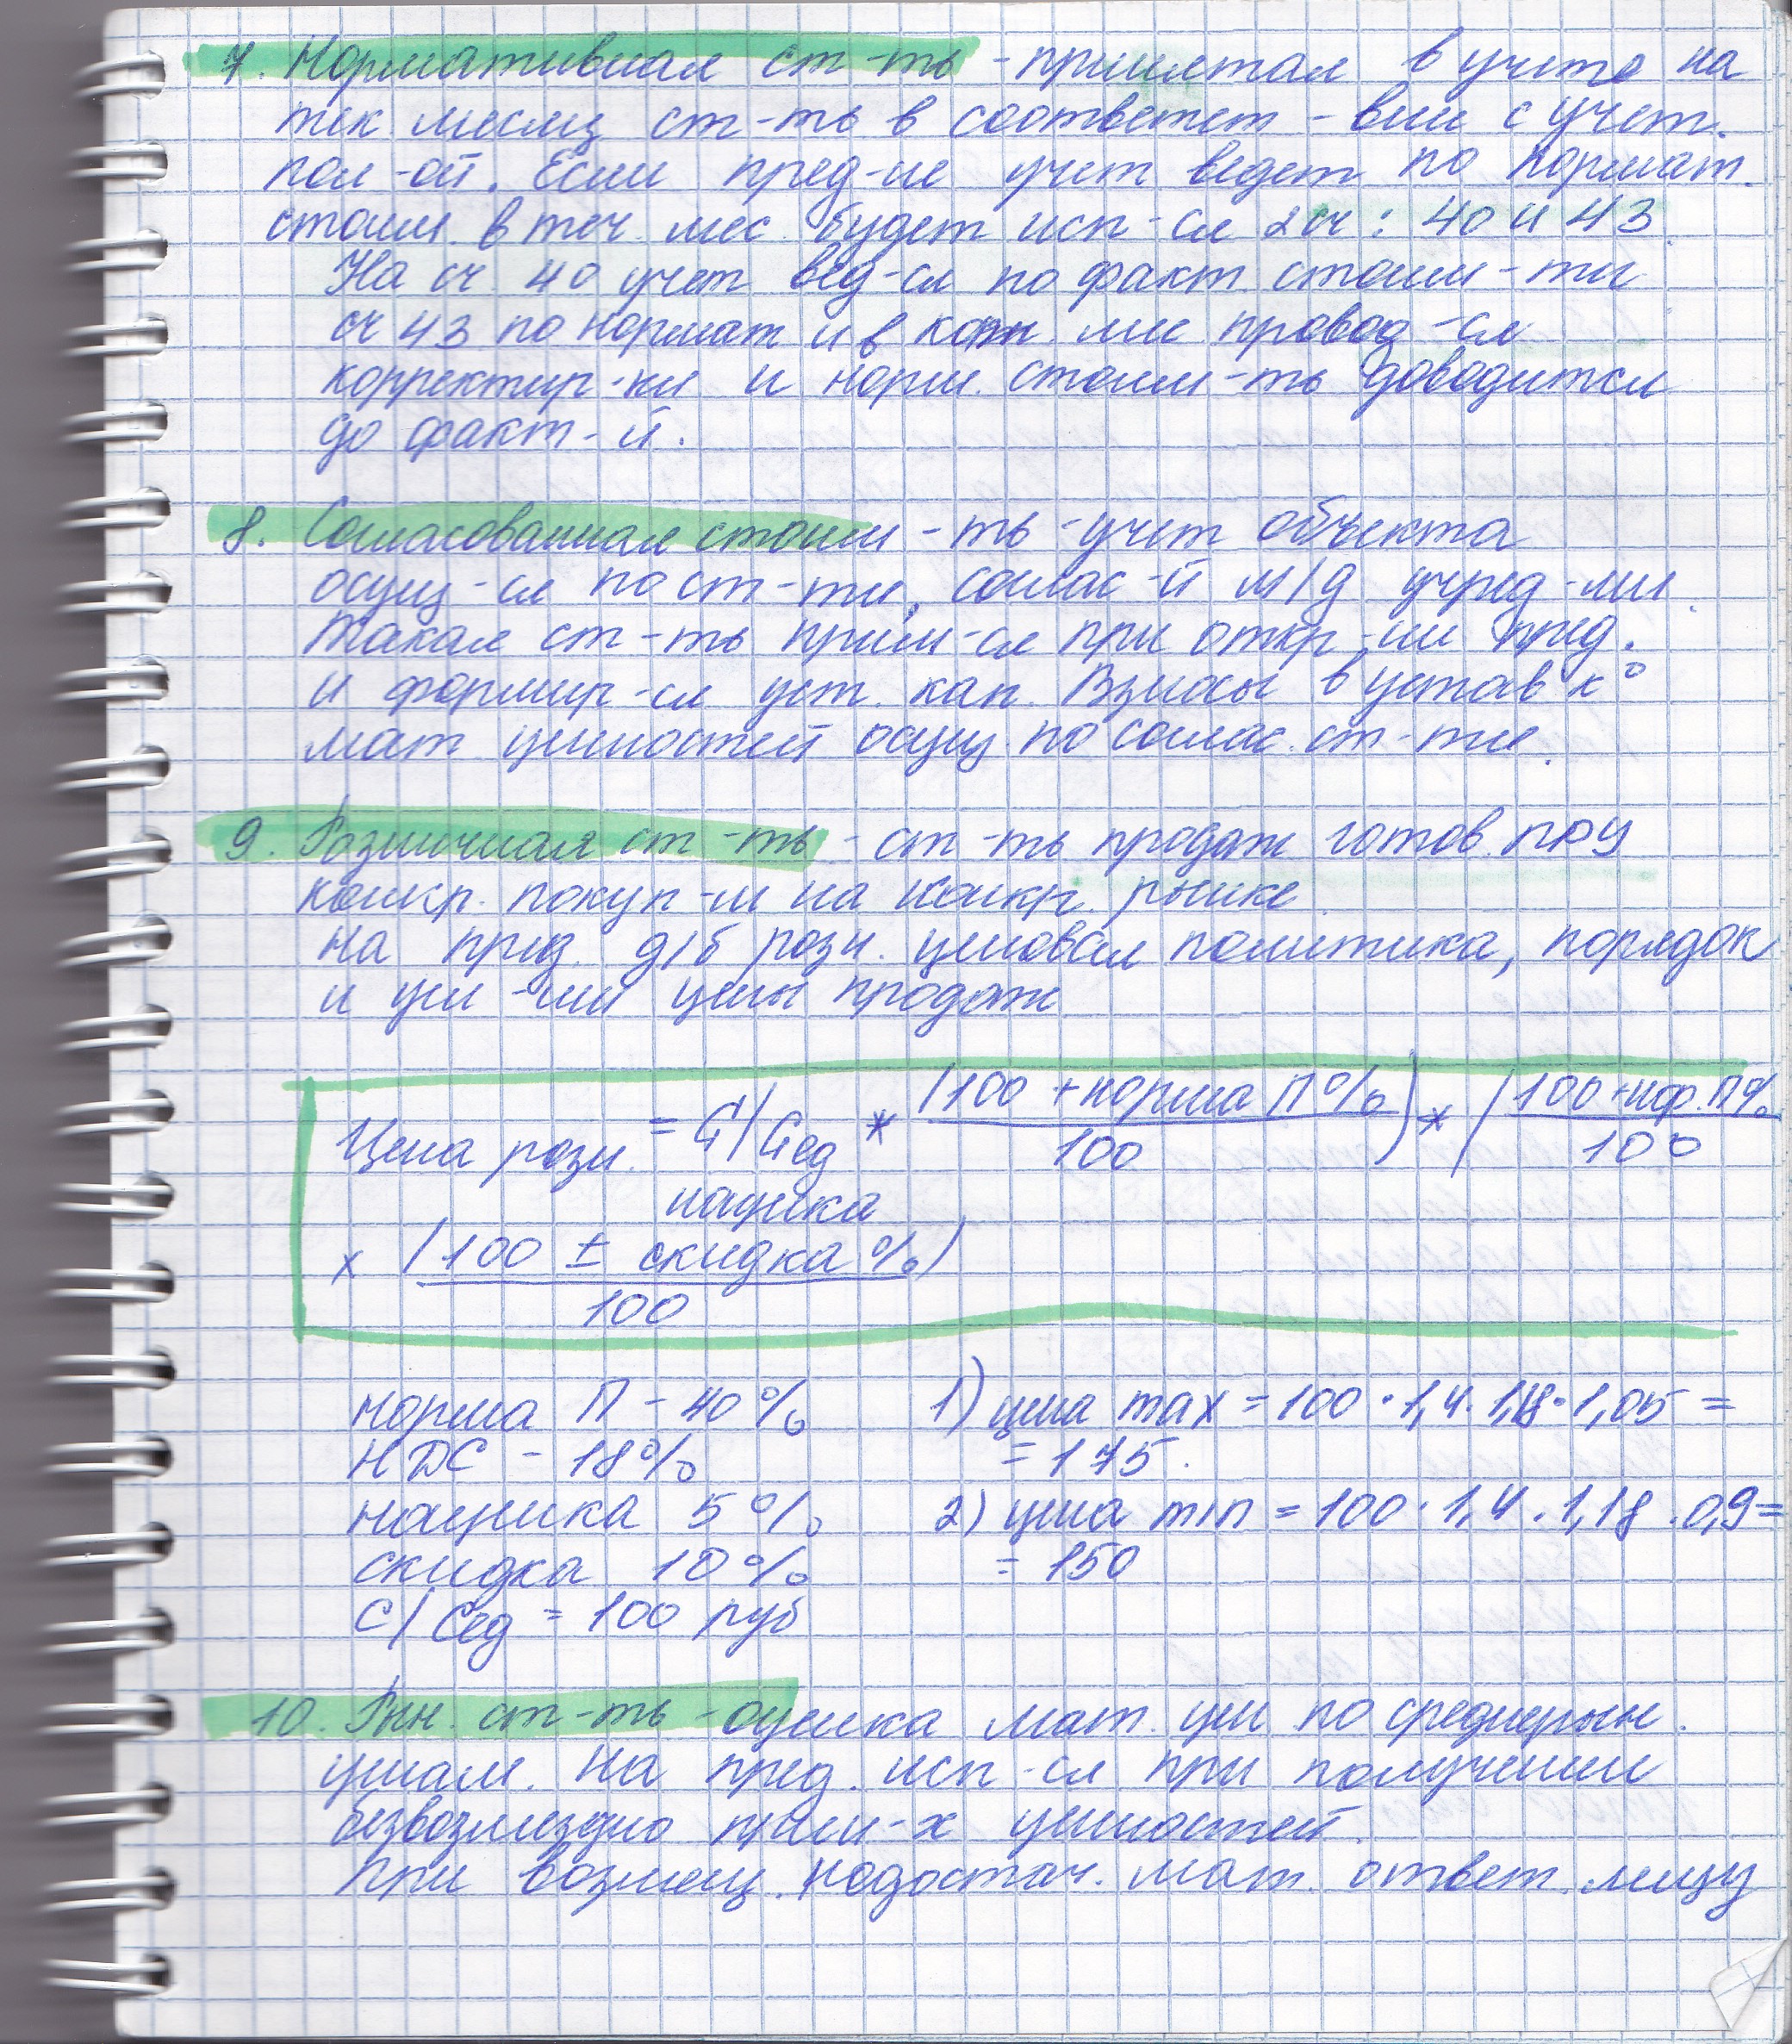 7. Нормативная ст-ть - принятая в учете на
тек. месяц ст-ть в соответст-вии с учет.
пол-ой. Если пред-ие учет ведет по нормат.
стоим. в теч. мес. будет исп-ся 2 сч: 40 и 43.
На сч. 40 учет вед-ся по факт. стоим-ти
сч 43 по нормат и в кон мес провод-ся
корректир-ки и норм. стоим-ть доводится
до факт-й.
8. Согласованная стоим-ть - учет объекта
осущ-ся по ст-ти, соглас-й м/д учред-ми.
Такая ст-ть прим-ся при откр-ии пред.
и формир-ся уст. кап. Взносы в устав к°
мат ценностей осущ. по соглас. ст-ти.
9. Розничная ст-ть - ст-ть продаж готов. ПРУ
конкр. покуп-м на конкр. рынке
На пред. д/б розн. ценовая политика, порядок
и усл-ия цены продаж
Цена розн. = С/Сед * (100 + норма П% / 100) * (100 + НДС% / 100
наценка
х (100 ± скидка % / 100)
норма П - 40%
НДС - 18%
наценка 5%
скидка 10%
С/Сед = 100 руб
1) цена max = 100 · 1,4 · 1,18 · 1,05 =
= 175.
2) цена min = 100 · 1,4 · 1,18 · 0,9 =
= 150
10. Рын. ст-ть - оценка мат. цен по среднерын.
ценам. На пред. исп-ся при получении
безвозмездно прин-х ценностей.
При возмещ. недостач. мат. ответ. лицу